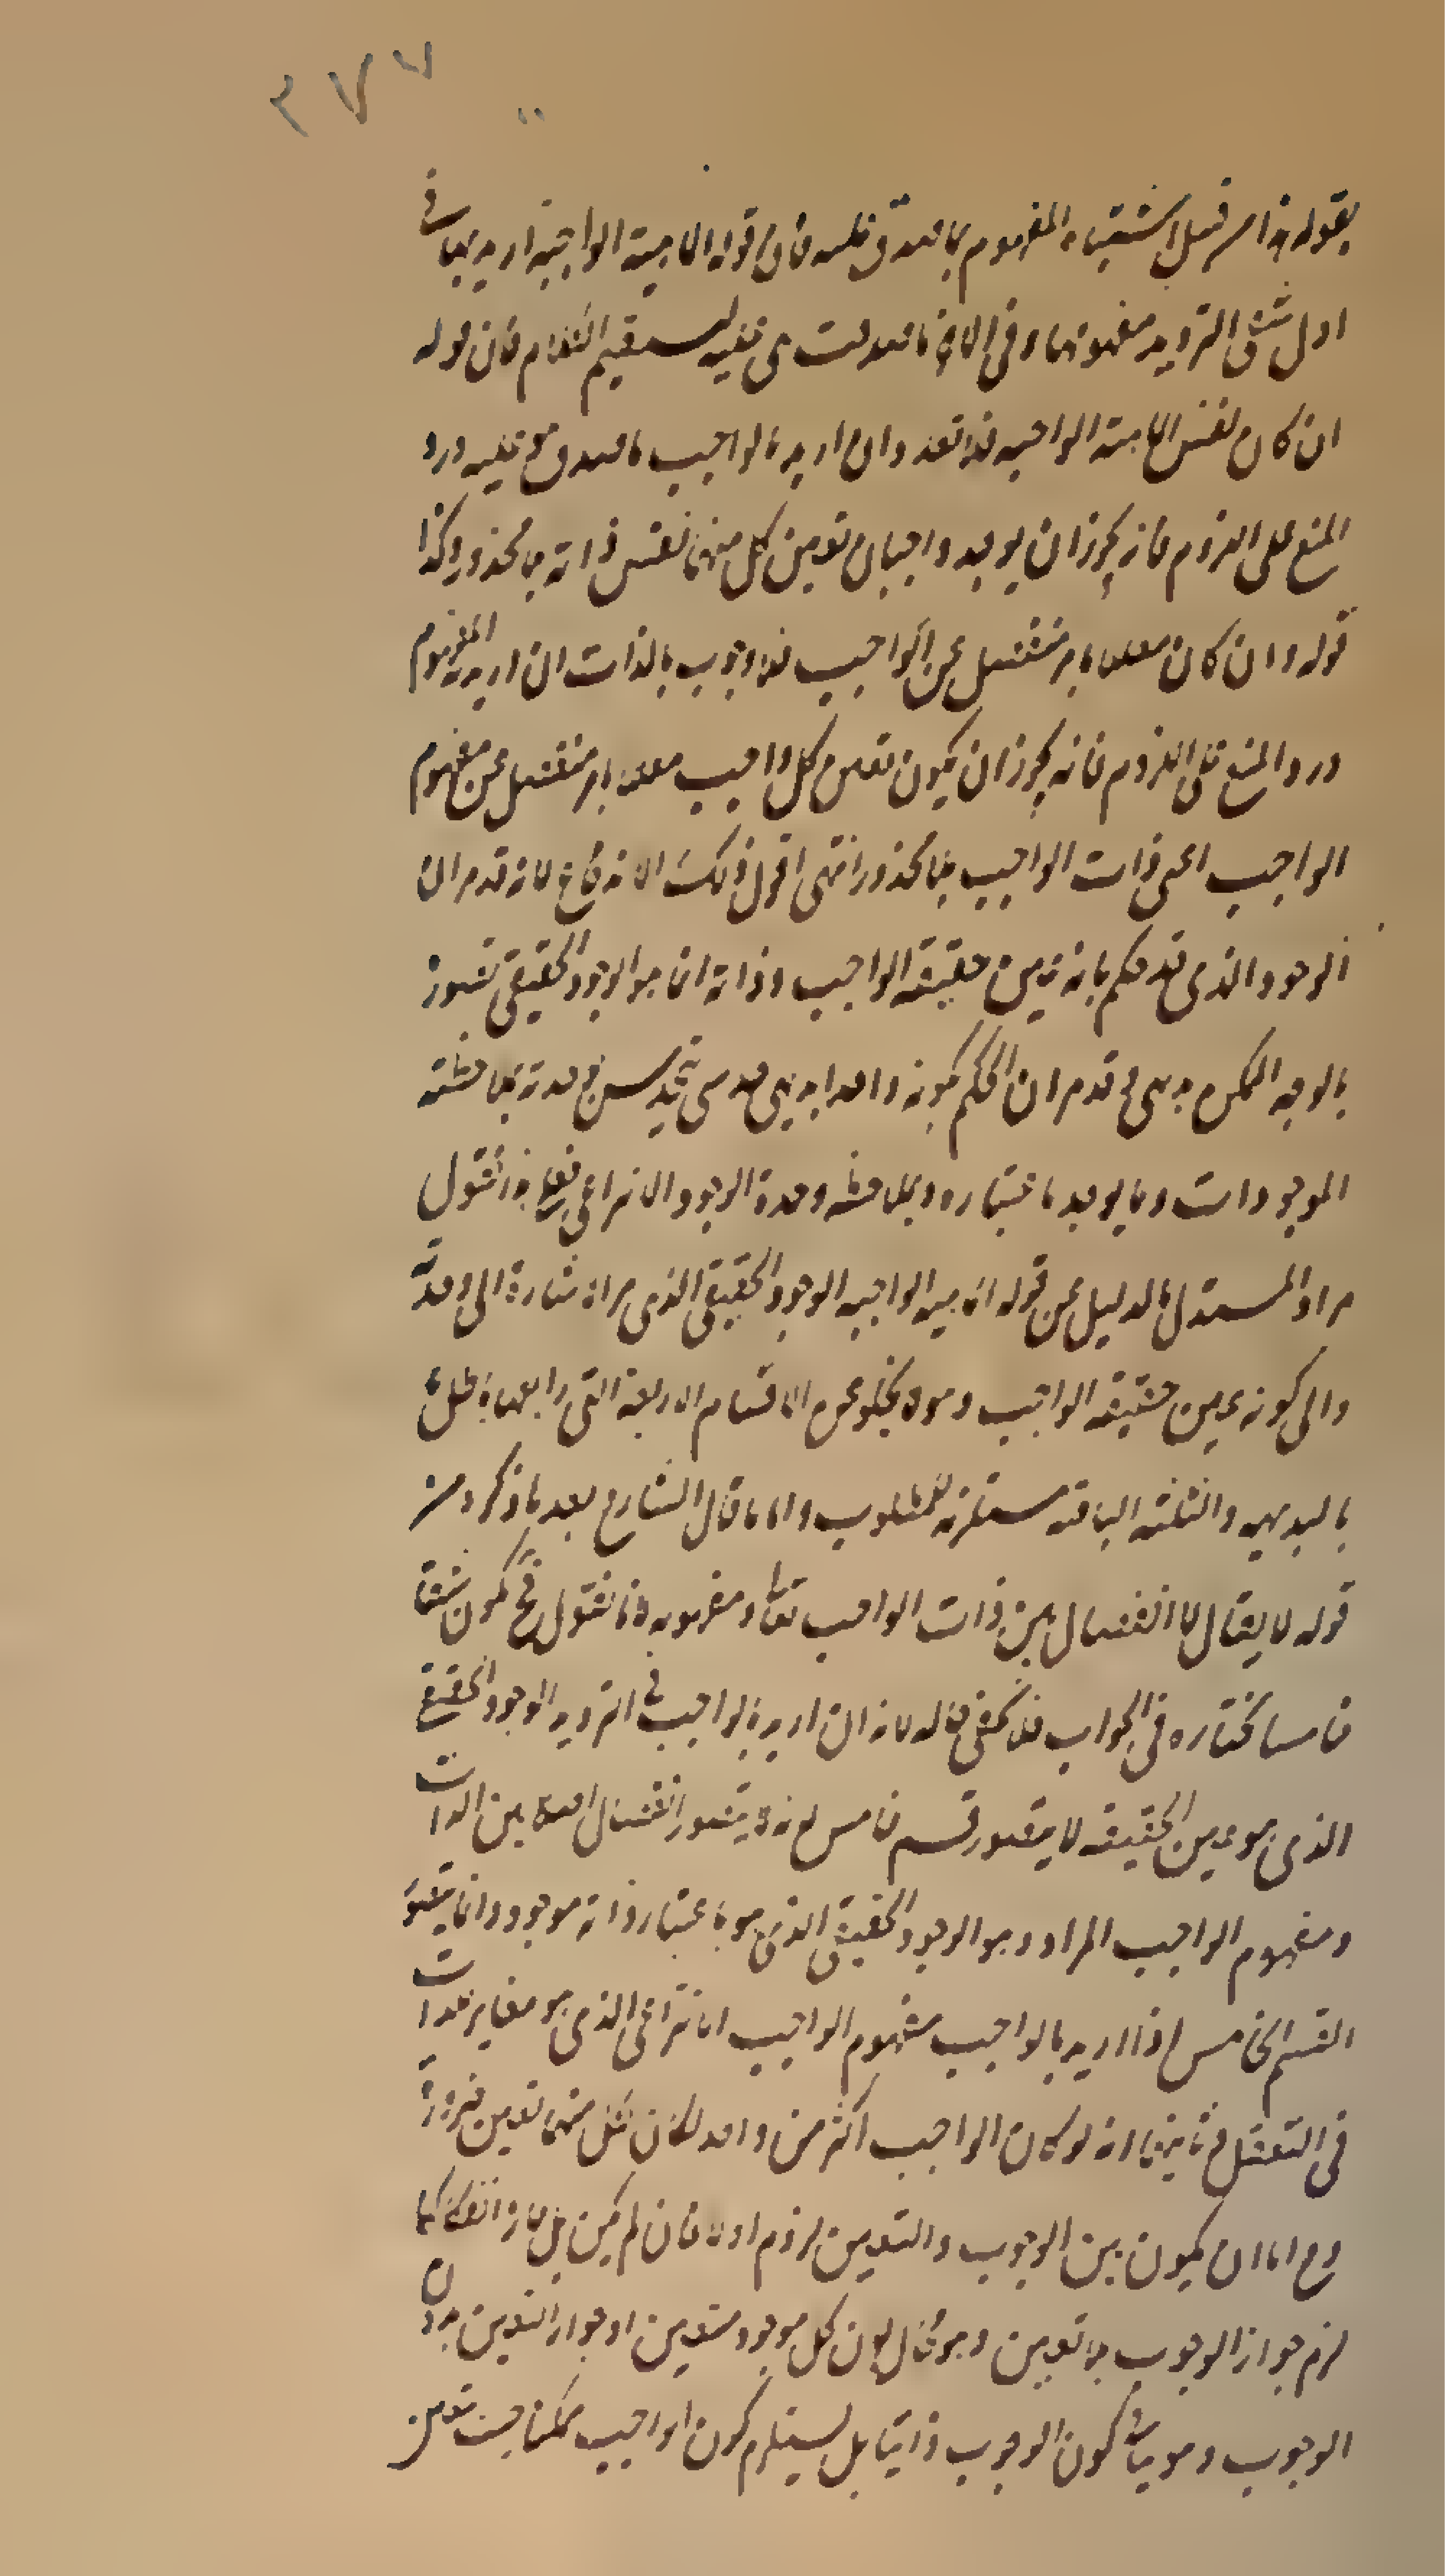 ٣٧٧
بقوله هذا من قبيل اشتباه المفهوم بما صدق عليه فان قوله الماهية الواجبة اريد بها في
اول شقي الترديد مفهومها وفي الثاني ما صدقت هي عليه ليستقيم الكلام فان قوله
ان كان نفس الماهية الواجبة فلا تعدد وان اريد بالواجب ما صدق هو عليه ورد
المنع على اللزوم فانه يجوز ان يوجد واجبان تعين كل منهما نفس ذاته بلا محذور وكذا
قوله وان كان معللا بامر منفصل عن الواجب فلا وجوب بالذات ان اريد به المفهوم
ورد المنع على اللزوم فانه يجوز ان يكون تعين كل واجب معللا بامر منفصل عن مفهوم
الواجب اعني ذات الواجب بلا محذور انتهى اقول وذلك لانه لانه قد مر ان
الوجود الذي قد حكم بانه عين حقيقة الواجب وذاته انما هو الوجود الحقيقي تصوره
بالوجه الممكن بديهي وقد مر ان الحكم بكونه واحدا بديهي حدسي يتحدس من وحدته بملاحظة
الموجودات وما يوجد باعتباره وبملاحظة وحدة الوجود الانتزاعي فنقول
مراد المستدل بالدليل من قوله الماهية الواجبة الوجود الحقيقي الذي مر الاشارة الى وحدته
والى كونه عين حقيقة الواجب وهو لا يخلو عن الاقسام الاربعة التي رابعها باطل
بالبديهة والثلثة الباقية مستلزمة للمطلوب واما ما قال الشارح بعد ما ذكره من
قوله لا يقال لا انفصال بين ذات الواجب تعالى ومفهومه لانا نقول فح يكون شقا
خامسا نختاره في الجواب فلا يخفى حاله لانه ان اريد بالواجب في الترديد الوجود الحقيقي
الذي هو عين الحقيقة لا يتصور قسم خامس لانه لا يتصور انفصال اصلا بين الذات
ومفهوم الواجب المراد وهو الوجود الحقيقي الذي هو باعتبار ذاته موجود وانما يتصور
القسم الخامس اذا اريد بالواجب مفهوم الواجب الانتزاعي الذي هو مغاير للذات
في التعقل وثانيها انه لو كان الواجب اكثر من واحد لكان لكل منهما تعين ضرورة
وح اما ان يكون بين الوجوب والتعين لزوم او لا فان لم يكن بل جاز انفكاكهما
لزم جواز الوجوب بلا تعين وهو محال لان كل موجود متعين او جواز التعين بدون
الوجوب وهو ينافي كون الوجوب ذاتيا بل يستلزم كون الواجب ممكنا حيث تعين